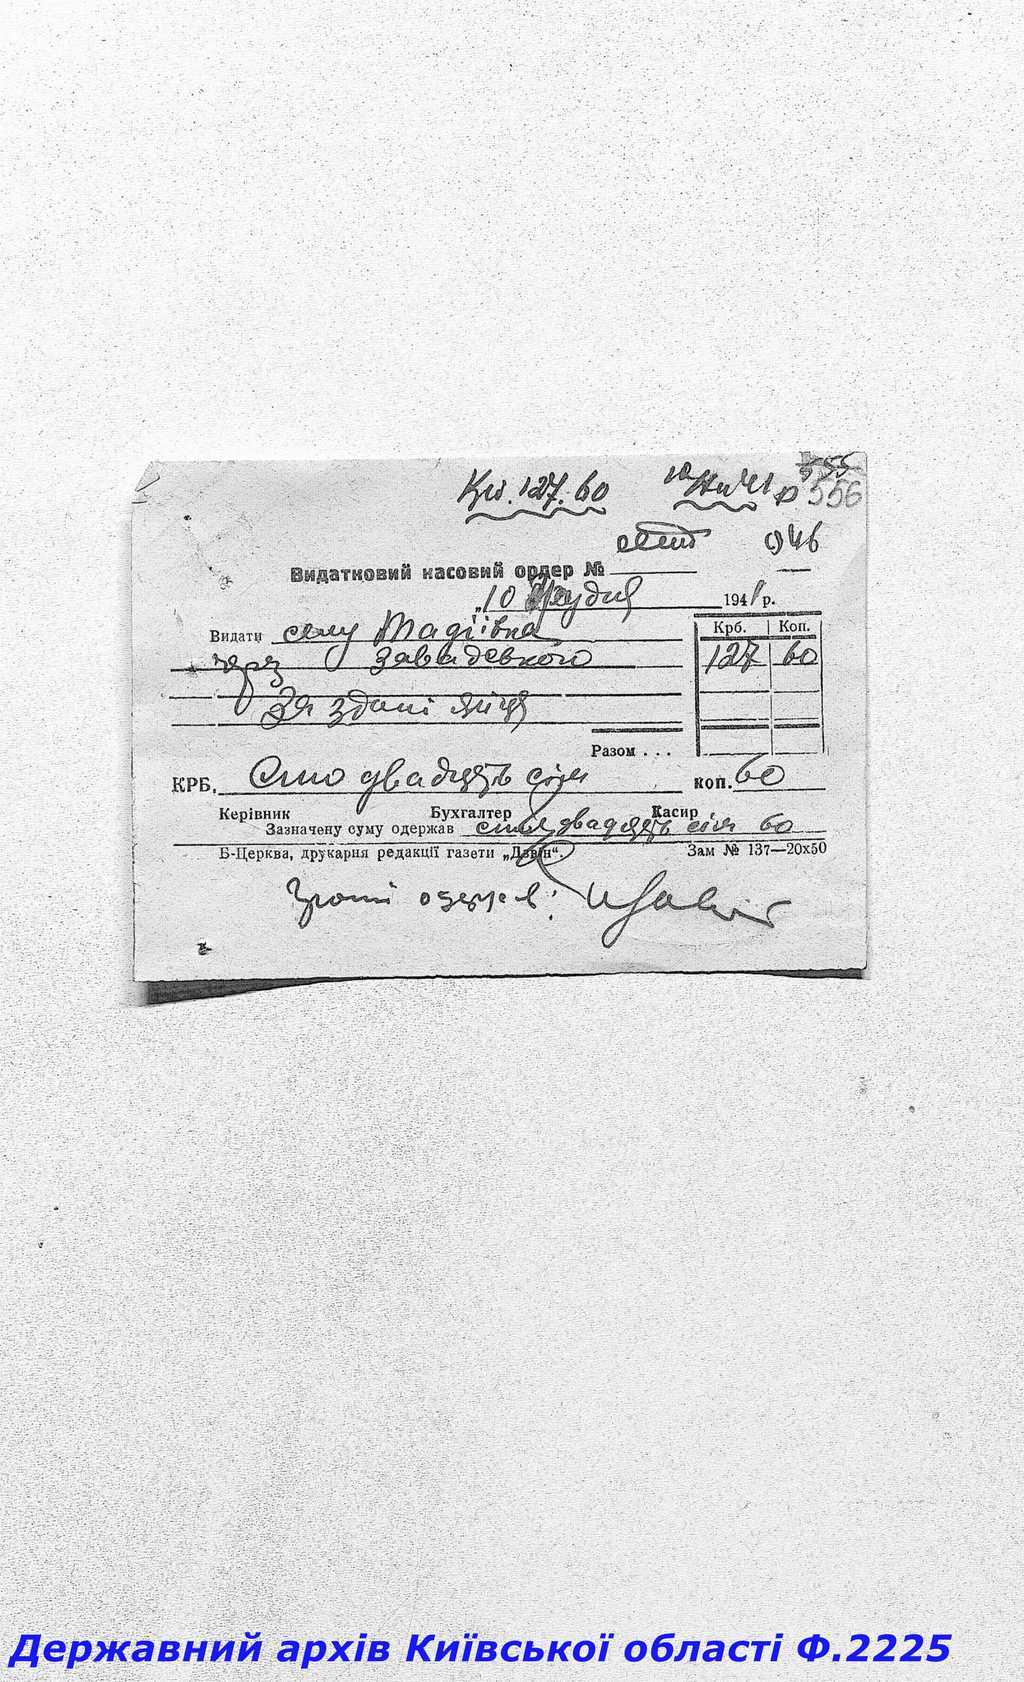 127.60
556
046
Видатковий касовий ордер №
„10 Грудня 1941 р.
Видати селу Мадіївка
Крб. Коп.
через Завадсвкого
127 60
За здані яйця
Разом . . .
КРБ. Сто двадцять сім коп. 60
Керівник Бухгалтер Касир
Зазначену суму одержав сто двадцять сім 60
Б-Церква, друкарня редакції газети „Дзвін“. Зам № 137—20х50
Гроші одержав:
Державний архів Київської області Ф.2225